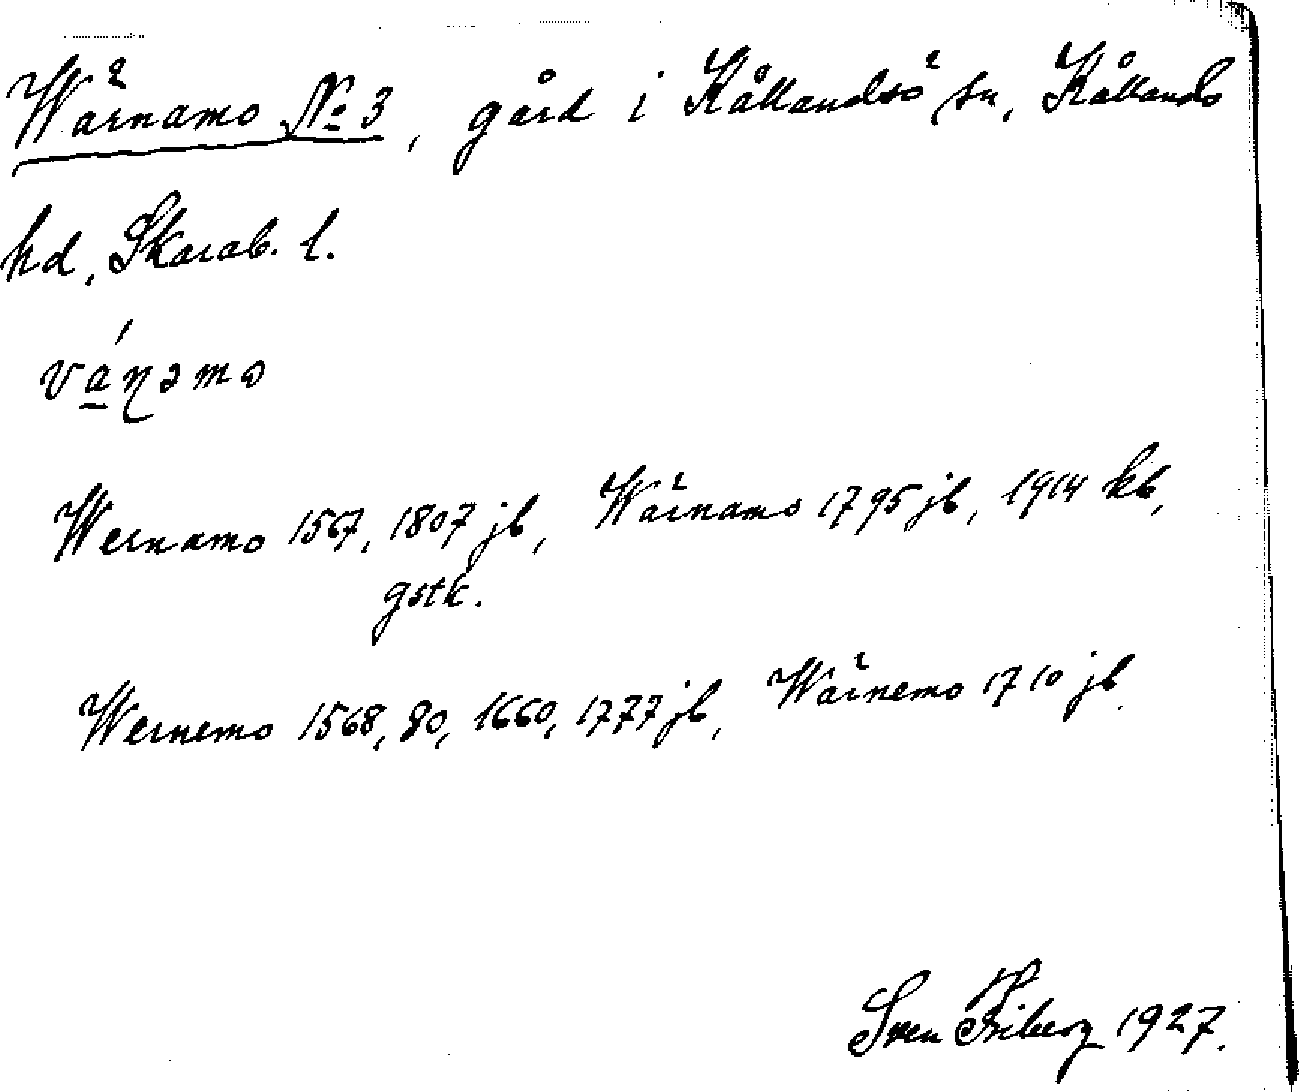 Wärnamo No 3, gård i Kållandsö sn, Kållands
hd, Skarab. l.
vá̱ɳəmo
Wernamo 1567, 1807 jb, Wärnamo 1795 jb, 1914 kb,
gstk.
Wernemo 1568, 80, 1660, 1777 jb, Wärnemo 1710 jb.
Sven Friberg 1927.